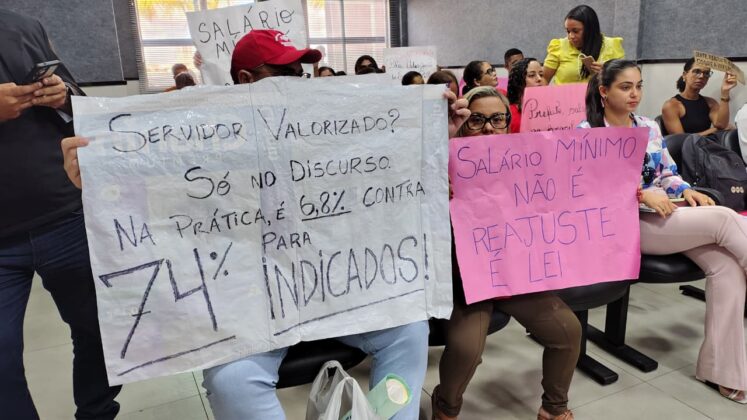 SALÁRIO
SERVIDOR VALORIZADO?
SÓ NO DISCURSO.
NA PRÁTICA, É 6,8% CONTRA
74% PARA
INDICADOS!
SALÁRIO MÍNIMO
NÃO É
REAJUSTE
É LEI
Prefeito,